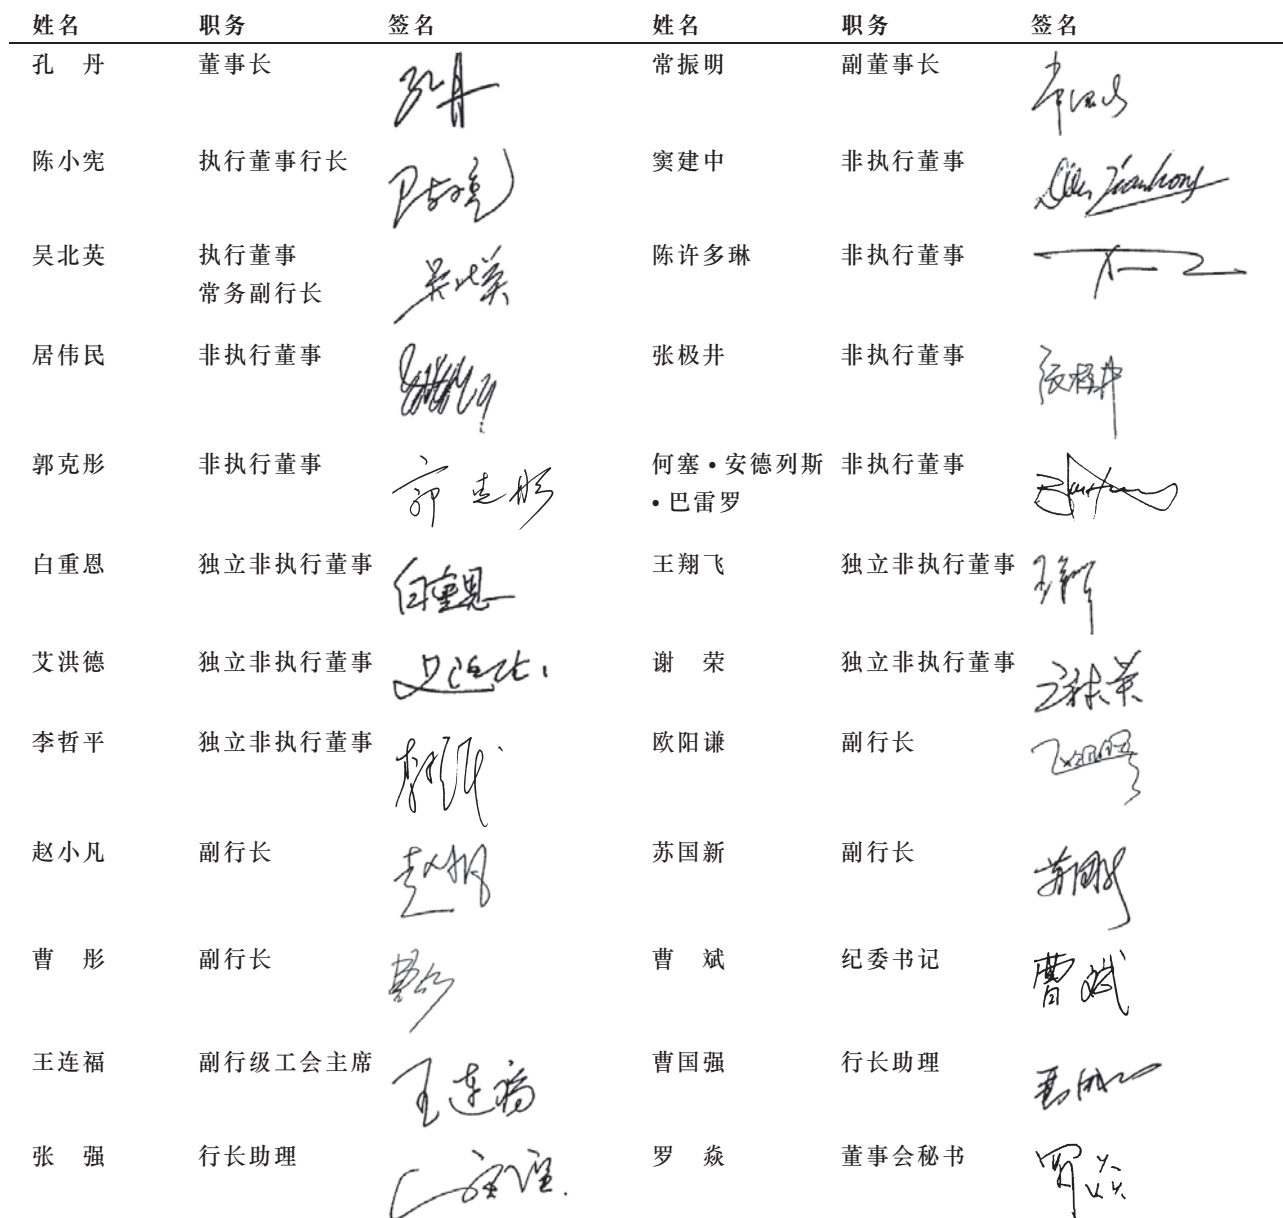 姓名 职务 签名 姓名 职务 签名
孔 丹 董事长 孔丹 常振明 副董事长
陈小宪 执行董事行长 窦建中 非执行董事
吴北英 执行董事 吴北英 陈许多琳 非执行董事
常务副行长
居伟民 非执行董事 张极井 非执行董事 张极井
郭克彤 非执行董事 郭克彤 何塞•安德列斯 非执行董事
•巴雷罗
白重恩 独立非执行董事 白重恩 王翔飞 独立非执行董事
艾洪德 独立非执行董事 谢 荣 独立非执行董事 谢荣
李哲平 独立非执行董事 欧阳谦 副行长
赵小凡 副行长 赵小凡 苏国新 副行长 苏国新
曹 彤 副行长 曹 斌 纪委书记 曹斌
王连福 副行级工会主席 王连福 曹国强 行长助理
张 强 行长助理 罗 焱 董事会秘书 罗焱